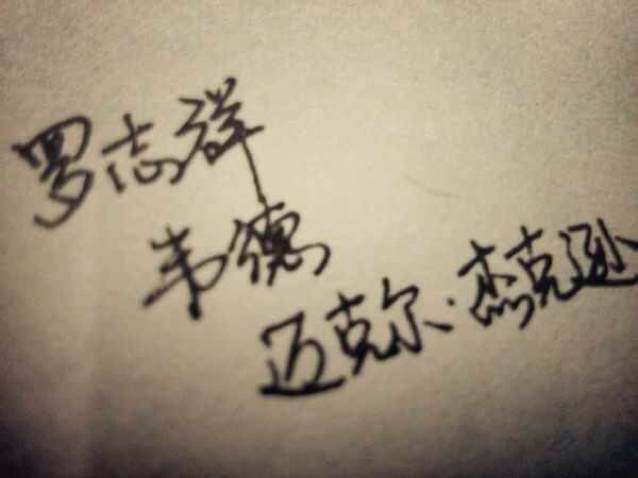 罗志祥
韦德
迈克尔·杰克逊